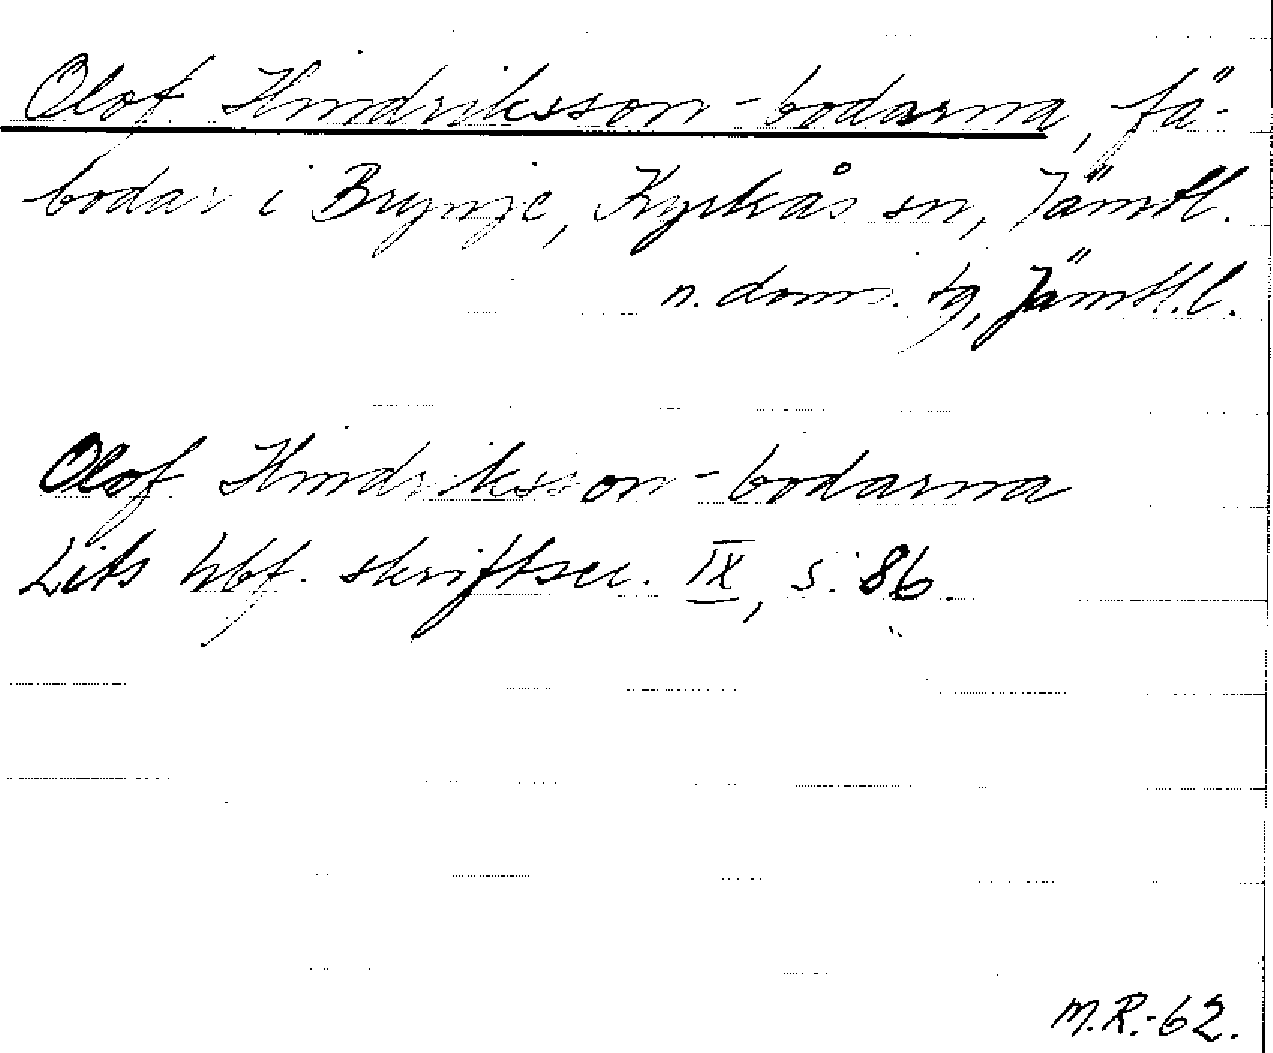 Olof Hindriksson-bodarna, fä-
bodar i Brynje, Kyrkås sn, Jämtl.
n. doms. tg, Jämtl. l.
Olof Hindriksson-bodarna
Lits hbf. skriftser. IX, s. 86.
M.R.-62.